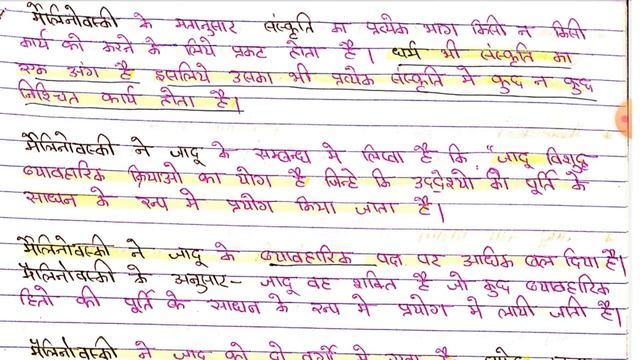 मैलिनोवस्की के मतानुसार संस्कृति का प्रत्येक भाग किसी न किसी
कार्य को करने के लिये प्रकट होता है। धर्म भी संस्कृति का
एक अंग है इसलिये उसका भी प्रत्येक संस्कृति मे कुछ न कुछ
निश्चित कार्य होता है।
मैलिनोवस्की ने जादू के सम्बन्ध मे लिखा है कि "जादू विशुद्ध
व्यावहारिक क्रियाओ का योग है जिन्हे कि उद्देश्यो की पूर्ति के
साधन के रूप मे प्रयोग किया जाता है।
मैलिनोवस्की ने जादू के व्यावहारिक पक्ष पर अधिक बल दिया है।
मैलिनोवस्की के अनुसार- जादू वह शक्ति है जो कुछ व्यावहारिक
हितो की पूर्ति के साधन के रूप मे प्रयोग मे लायी जाती है।
मैलिनोवस्की ने जादू को दो